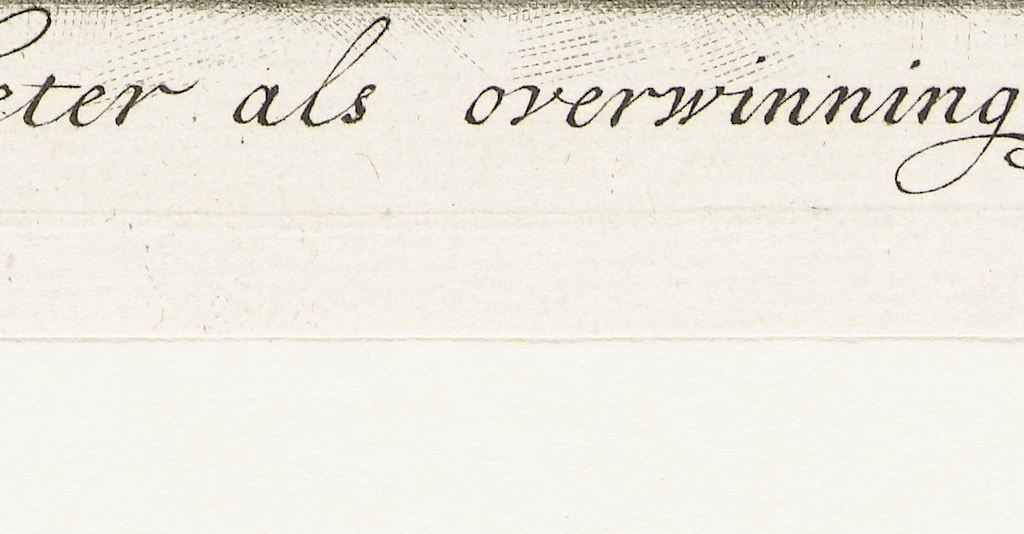 eter als overwinning